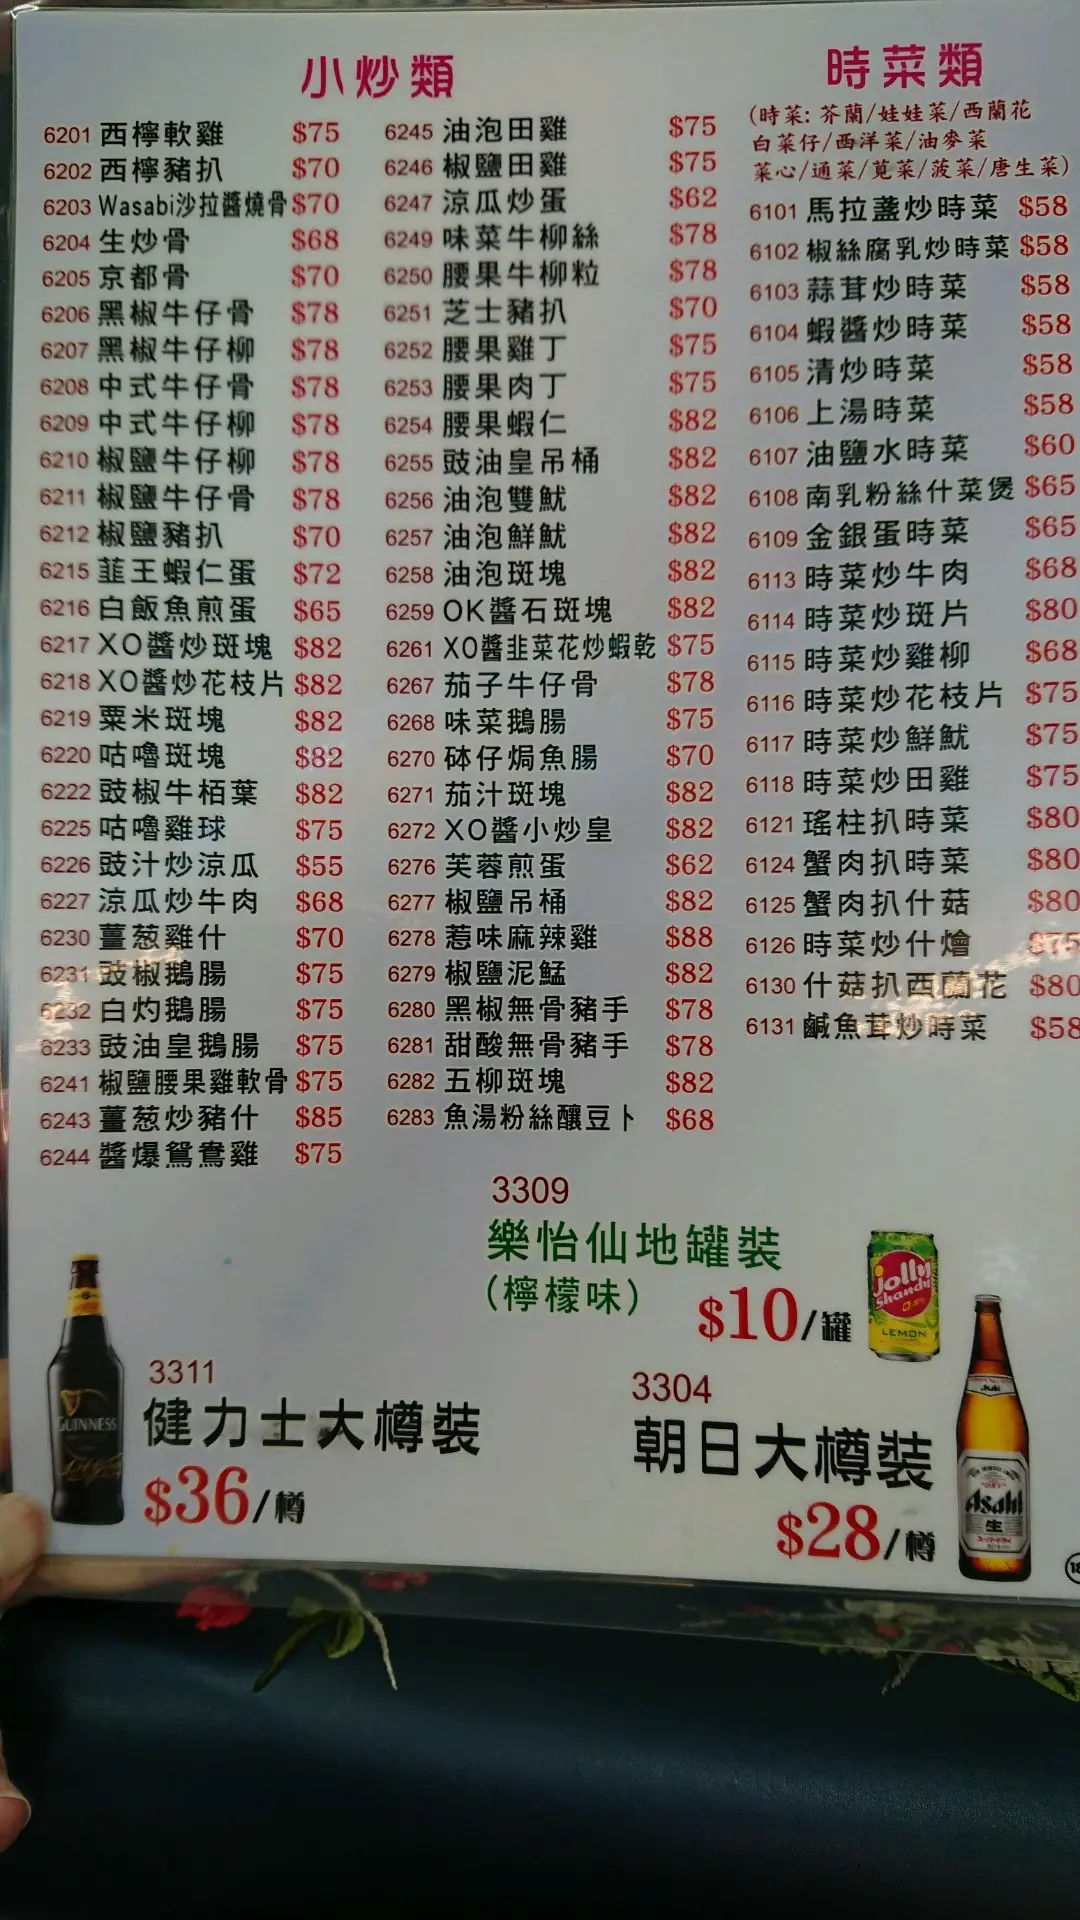 小炒類
6201 西檸軟雞 $75
6202 西檸豬扒 $70
6203 Wasabi沙拉醬燒骨 $70
6204 生炒骨 $68
6205 京都骨 $70
6206 黑椒牛仔骨 $78
6207 黑椒牛仔柳 $78
6208 中式牛仔骨 $78
6209 中式牛仔柳 $78
6210 椒鹽牛仔柳 $78
6211 椒鹽牛仔骨 $78
6212 椒鹽豬扒 $70
6215 韮王蝦仁蛋 $72
6216 白飯魚煎蛋 $65
6217 XO醬炒斑塊 $82
6218 XO醬炒花枝片 $82
6219 粟米斑塊 $82
6220 咕嚕斑塊 $82
6222 豉椒牛栢葉 $82
6225 咕嚕雞球 $75
6226 豉汁炒涼瓜 $55
6227 涼瓜炒牛肉 $68
6230 薑葱雞什 $70
6231 豉椒鵝腸 $75
6232 白灼鵝腸 $75
6233 豉油皇鵝腸 $75
6241 椒鹽腰果雞軟骨 $75
6243 薑葱炒豬什 $85
6244 醬爆鴛鴦雞 $75
6245 油泡田雞 $75
6246 椒鹽田雞 $75
6247 涼瓜炒蛋 $62
6249 味菜牛柳絲 $78
6250 腰果牛柳粒 $78
6251 芝士豬扒 $70
6252 腰果雞丁 $75
6253 腰果肉丁 $75
6254 腰果蝦仁 $82
6255 豉油皇吊桶 $82
6256 油泡雙魷 $82
6257 油泡鮮魷 $82
6258 油泡斑塊 $82
6259 OK醬石斑塊 $82
6261 XO醬韭菜花炒蝦乾 $75
6267 茄子牛仔骨 $78
6268 味菜鵝腸 $75
6270 砵仔焗魚腸 $70
6271 茄汁斑塊 $82
6272 XO醬小炒皇 $82
6276 芙蓉煎蛋 $62
6277 椒鹽吊桶 $82
6278 惹味麻辣雞 $88
6279 椒鹽泥鯭 $82
6280 黑椒無骨豬手 $78
6281 甜酸無骨豬手 $78
6282 五柳斑塊 $82
6283 魚湯粉絲釀豆卜 $68
時菜類
(時菜: 芥蘭/娃娃菜/西蘭花
白菜仔/西洋菜/油麥菜
菜心/通菜/莧菜/菠菜/唐生菜)
6101 馬拉盞炒時菜 $58
6102 椒絲腐乳炒時菜 $58
6103 蒜茸炒時菜 $58
6104 蝦醬炒時菜 $58
6105 清炒時菜 $58
6106 上湯時菜 $58
6107 油鹽水時菜 $60
6108 南乳粉絲什菜煲 $65
6109 金銀蛋時菜 $65
6113 時菜炒牛肉 $68
6114 時菜炒斑片 $80
6115 時菜炒雞柳 $68
6116 時菜炒花枝片 $75
6117 時菜炒鮮魷 $75
6118 時菜炒田雞 $75
6121 瑤柱扒時菜 $80
6124 蟹肉扒時菜 $80
6125 蟹肉扒什菇 $80
6126 時菜炒什燴 $75
6130 什菇扒西蘭花 $80
6131 鹹魚茸炒時菜 $58
3309
樂怡仙地罐裝
(檸檬味)
$10/罐
jolly
Shandy
0.5%
LEMON
3311
健力士大樽裝
$36/樽
GUINNESS
3304
朝日大樽裝
$28/樽
Asahi
Asahi
生
18